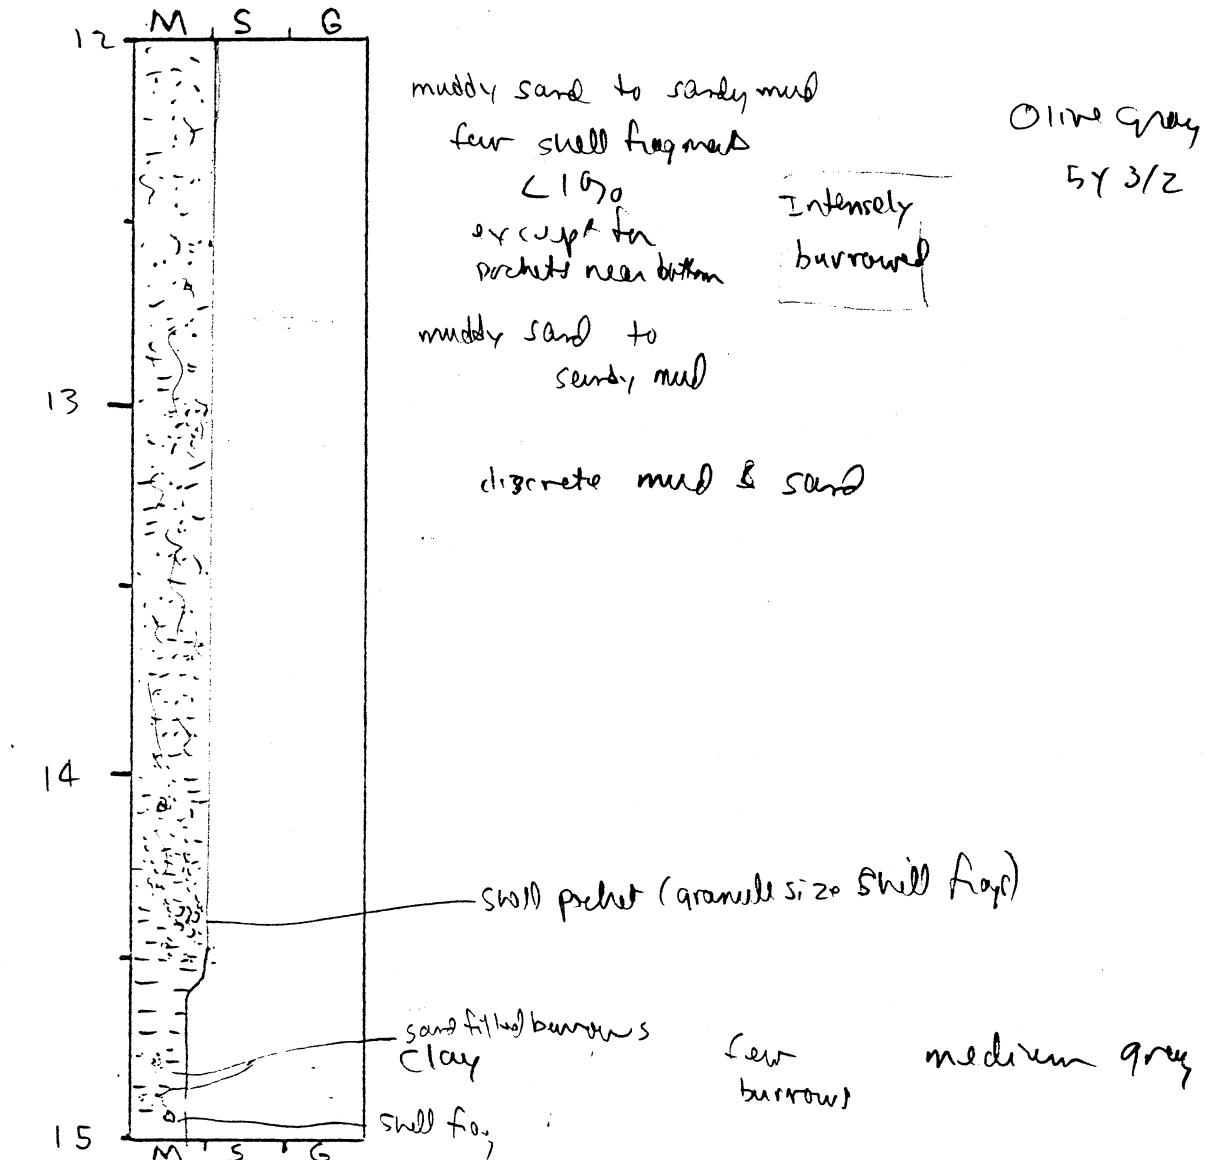 M S G
12
muddy sand to sandy mud
few shell fragments
<1%
except for
pockets near bottom
Intensely
burrowed
Olive Gray
5Y 3/2
muddy sand to
sandy mud
13
discrete mud & sand
14
shell pocket (granule size shell frags)
sand filled burrows
clay
few
burrows
medium gray
shell frag
15
M S G